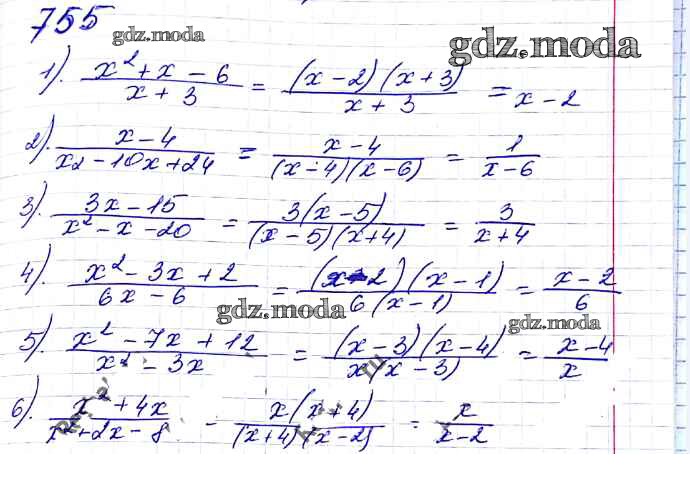 755
gdz.moda
gdz.moda
1). x²+x-6 / x+3 = (x-2)(x+3) / x+3 = x-2
2). x-4 / x2-10x+24 = x-4 / (x-4)(x-6) = 1 / x-6
3). 3x-15 / x²-x-20 = 3(x-5) / (x-5)(x+4) = 3 / x+4
4). x²-3x+2 / 6x-6 = (x-2)(x-1) / 6(x-1) = x-2 / 6
gdz.moda
gdz.moda
5). x²-7x+12 / x²-3x = (x-3)(x-4) / x(x-3) = x-4 / x
6). x²+4x / x²+2x-8 - x(x+4) / (x+4)(x-2) = x / x-2